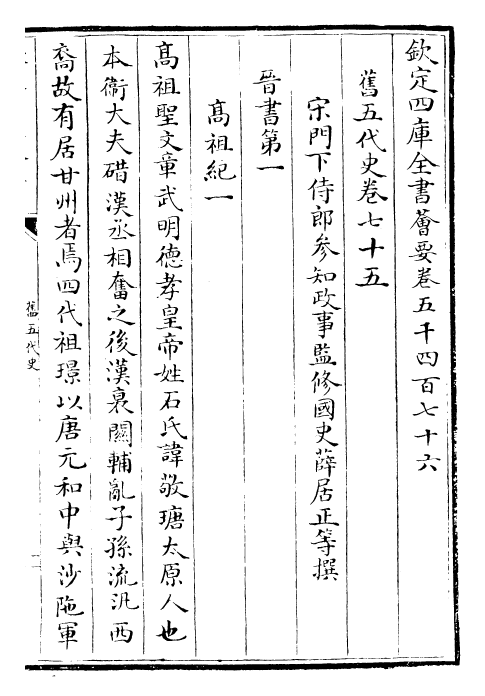 欽定四庫全書薈要卷五千四百七十六
舊五代史卷七十五
宋門下侍郎參知政事監修國史薛居正等撰
晉書第一
髙祖紀一
髙祖聖文章武明德孝皇帝姓石氏諱敬瑭太原人也
本衞大夫碏漢丞相奮之後漢衰關輔亂子孫流汎西
裔故有居甘州者焉四代祖璟以唐元和中與沙陁軍
舊五代史